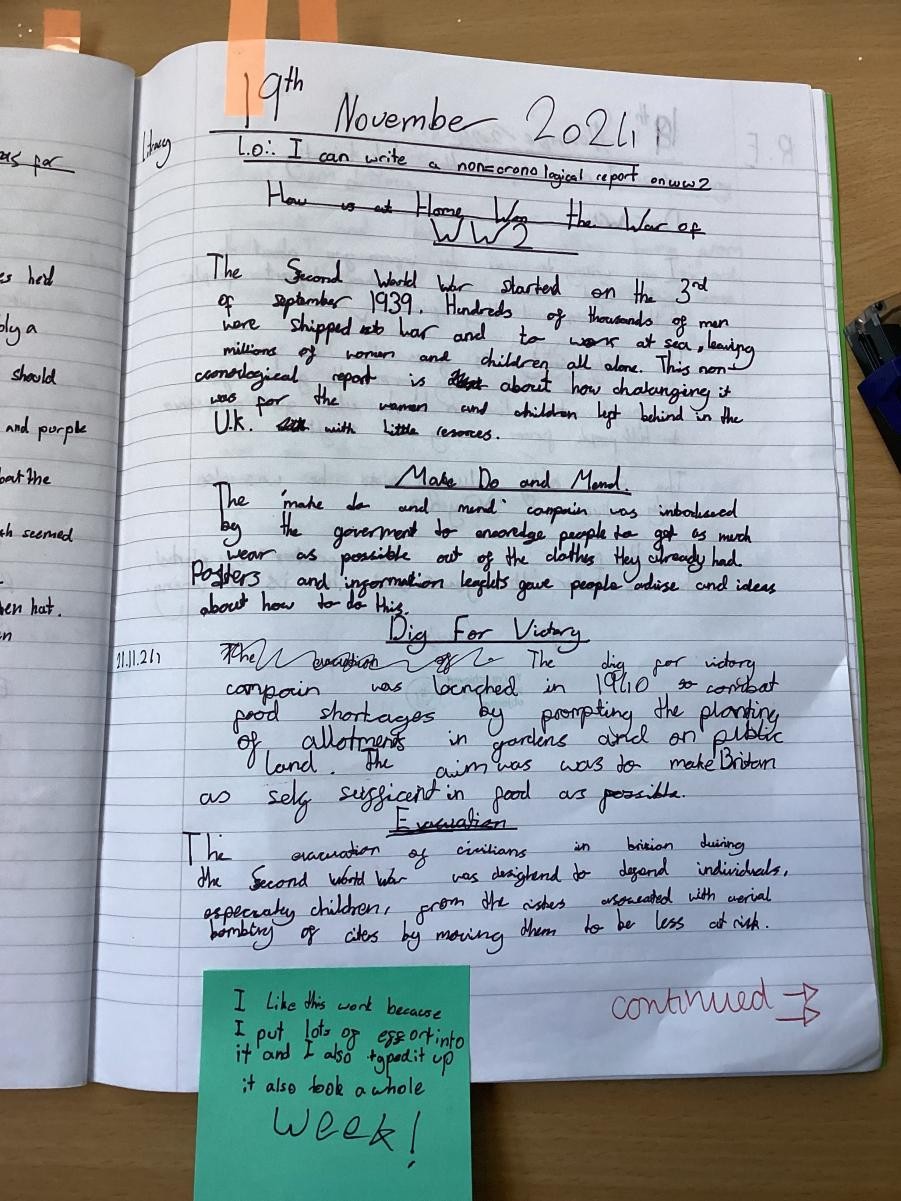 as for
es he'd
bly a
should
and purple
bout the
ch seemed
en hat.
n
19th November 2024
Literacy
L.O: I can write a non-cronological report on WW2
How us at Home Won the War of
WW2
The Second World War started on the 3rd
of september 1939. Hundreds of thousands of men
were shipped to war and to work at sea, leaving
millions of women and children all alone. This non-
cronological report is about how chalanging it
was for the women and children left behind in the
U.K. with little resorces.
Make Do and Mend.
The 'make do and mend' campain was inboduced
by the goverment to encoredge people to get as much
wear as possible out of the clothes they already had.
Posters and information leaflets gave people advise and ideas
about how to do this.
Dig For Victory
21.11.24
The evacuation of The dig for victory
campain was lacnched in 1940 to combat
food shortages by prompting the planting
of allotments in gardens and on public
land. The aim was was to make Britan
as self sufficent in food as possible.
Evacuation
The evacuation of civilians in britian during
the Second world War was desighend to defend individuals,
especialy children, from the rishes asoceated with aerial
bombtry of cites by moving them to be less at risk.
continued
I Like this work because
I put lots of effort into
it and I also typed it up
it also took a whole
week!